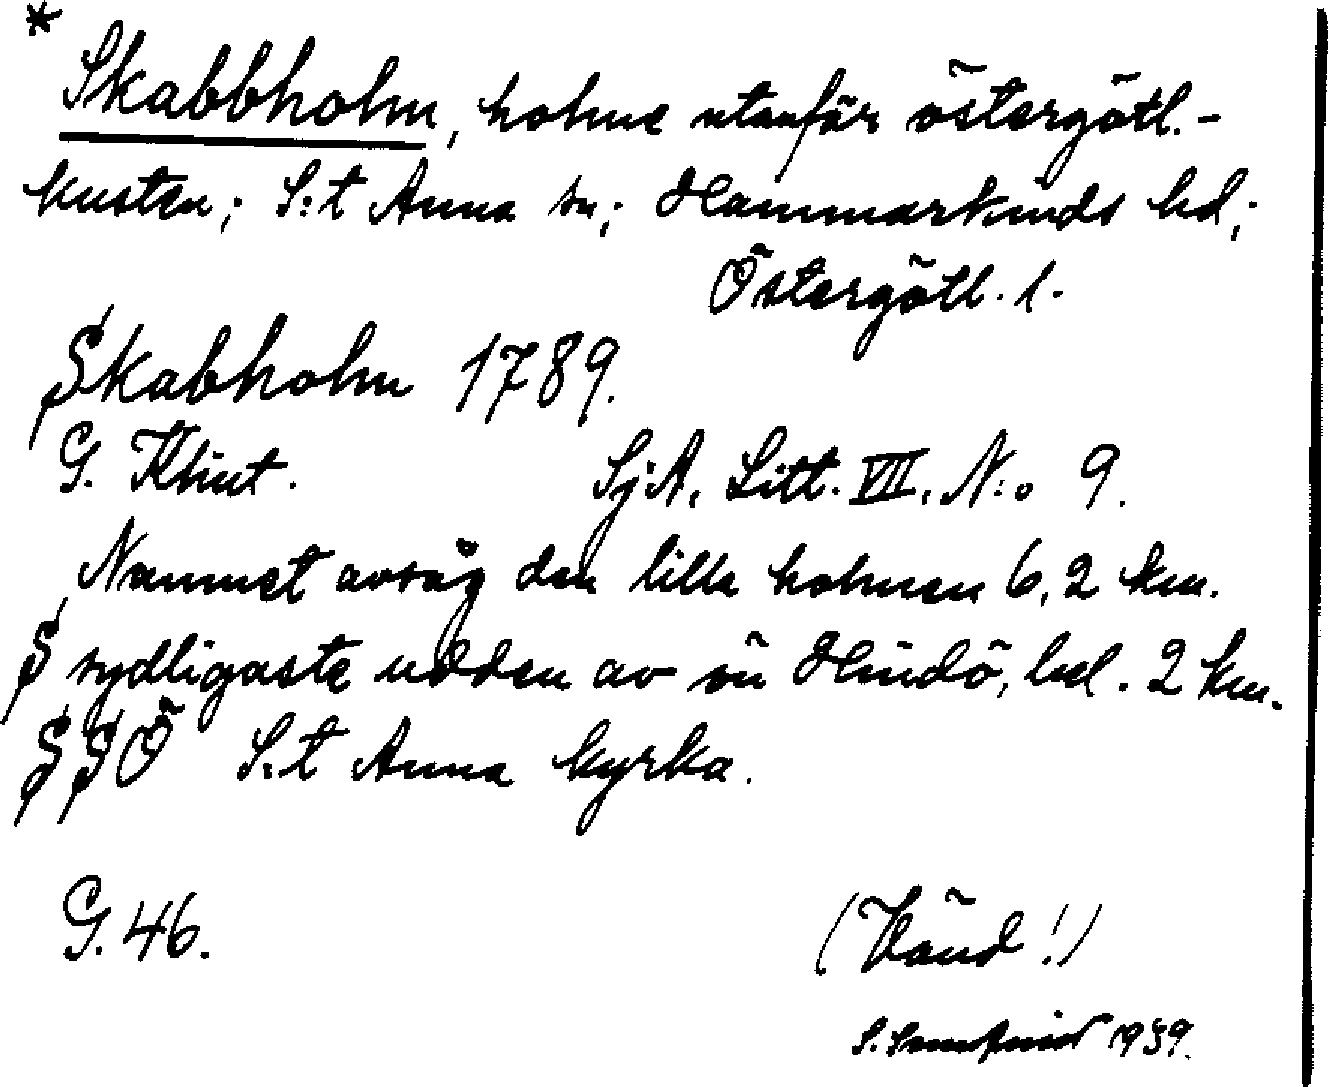 *
Skabbholm, holme utanför östergötl.-
kusten; S:t Anna sn; Hammarkinds hd;
Östergötl. l.
Skabholm 1789.
G. Klint. SjA, Litt. VII. N:o 9.
Namnet avsåg den lilla holmen 6,2 km.
S sydligaste udden av ön Hindö, bel. 2 km.
SSÖ S:t Anna kyrka.
G. 46. (Vänd!)
1939.